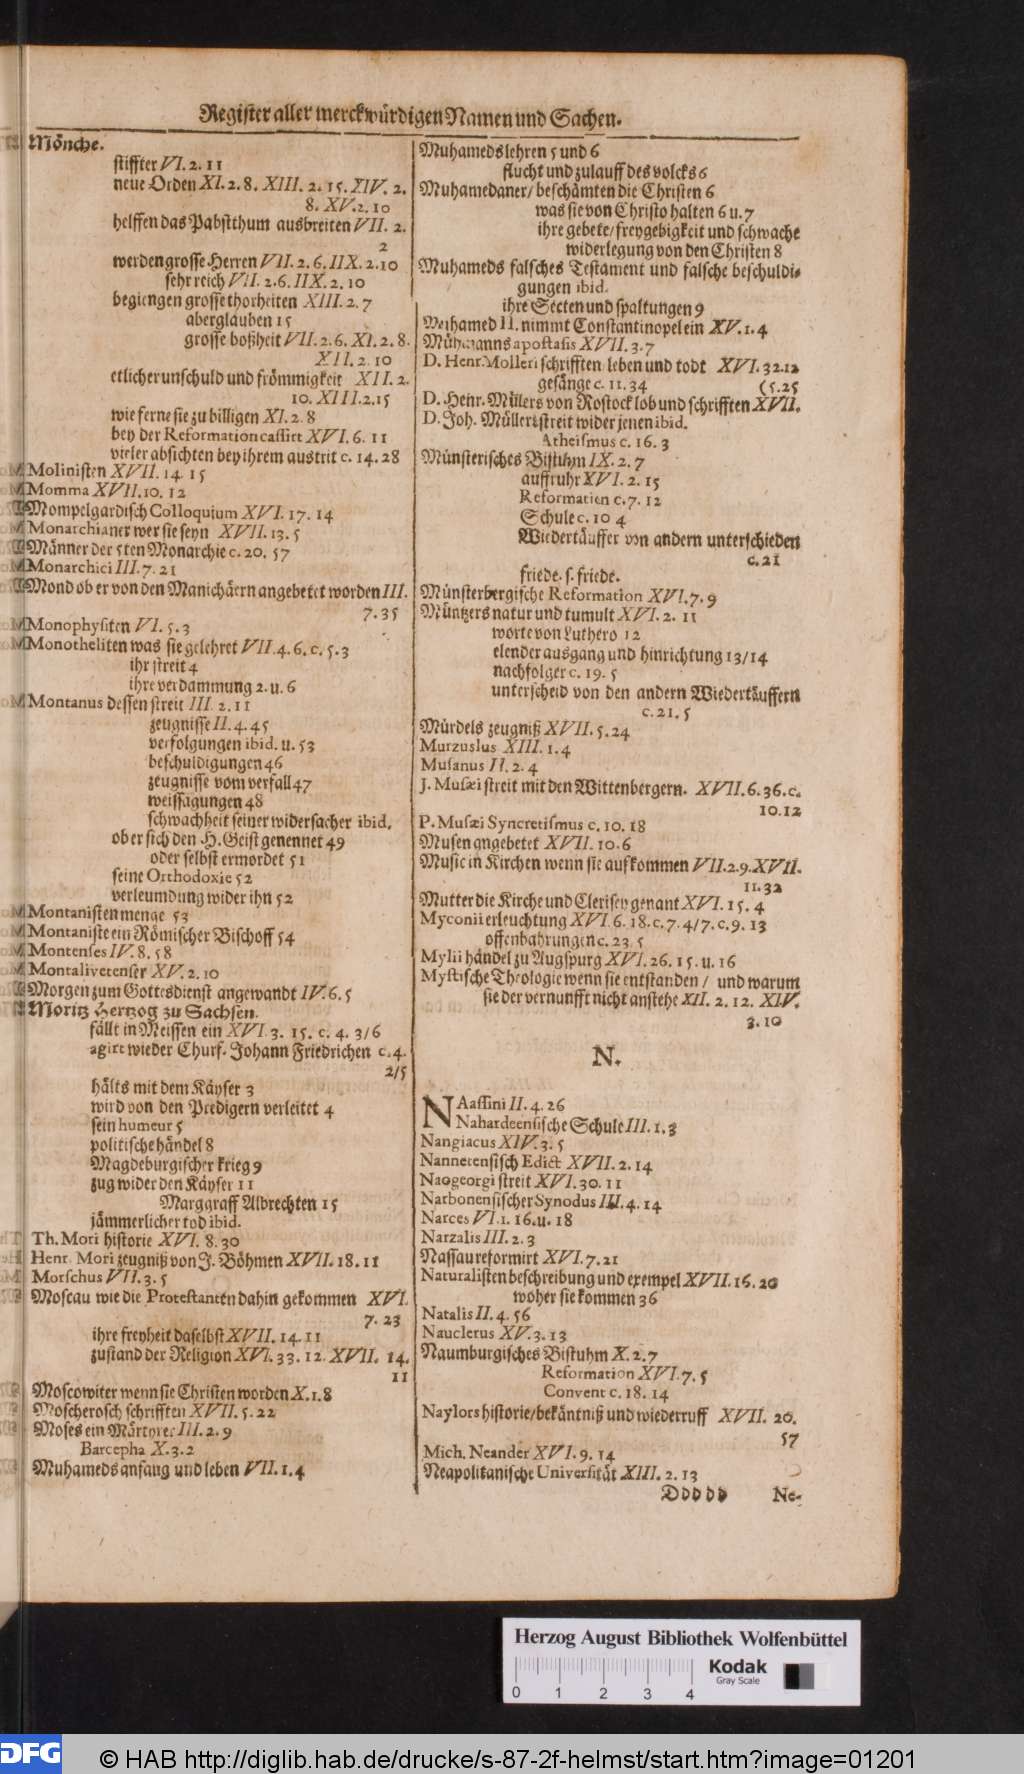 Register aller merckwürdigen Namen und Sachen.
Mönche.
stiffter VI. 2. 11
neue Orden XI. 2. 8. XIII. 2. 15. XIV. 2.
8. XV. 2. 10
helffen das Pabstthum ausbreiten VII. 2.
2
werden grosse Herren VII. 2. 6. IIX. 2. 10
sehr reich VII. 2. 6. IIX. 2. 10
begiengen grosse thorheiten XIII. 2. 7
aberglauben 15
grosse boßheit VII. 2. 6. XI. 2. 8.
XII. 2. 10
etlicher unschuld und frömmigkeit XII. 2.
10. XIII. 2. 15
wie ferne sie zu billigen XI. 2. 8
bey der Reformation cassirt XVI. 6. 11
vieler absichten bey ihrem austrit c. 14. 28
Molinisten XVII. 14. 15
Momma XVII. 10. 12
Mompelgardisch Colloquium XVI. 17. 14
Monarchianer wer sie seyn XVII. 13. 5
Männer der 5ten Monarchie c. 20. 57
Monarchici III. 7. 21
Mond ob er von den Manichäern angebetet worden III.
7. 35
Monophysiten VI. 5. 3
Monotheliten was sie gelehret VII. 4. 6. c. 5. 3
ihr streit 4
ihre verdammung 2. u. 6
Montanus dessen streit III. 2. 11
zeugnisse II. 4. 45
verfolgungen ibid. u. 53
beschuldigungen 46
zeugnisse vom verfall 47
weissagungen 48
schwachheit seiner widersacher ibid.
ob er sich den H. Geist genennet 49
oder selbst ermordet 51
seine Orthodoxie 52
verleumdung wider ihn 52
Montanisten menge 53
Montaniste ein Römischer Bischoff 54
Montenses IV. 8. 58
Montalivetenser XV. 2. 10
Morgen zum Gottesdienst angewandt IV. 6. 5
Moritz Hertzog zu Sachsen.
fällt in Meissen ein XVI. 3. 15. c. 4. 3/6
agirt wieder Churf. Johann Friedrichen c. 4.
2/5
hälts mit dem Käyser 3
wird von den Predigern verleitet 4
sein humeur 5
politische händel 8
Magdeburgischer krieg 9
zug wider den Käyser 11
Marggraff Albrechten 15
jämmerlicher tod ibid.
Th. Mori historie XVI. 8. 30
Henr. Mori zeugniß von J. Böhmen XVII. 18. 11
Morschus VII. 3. 5
Moscau wie die Protestanten dahin gekommen XVI.
7. 23
ihre freyheit daselbst XVII. 14. 11
zustand der Religion XVI. 33. 12. XVII. 14.
11
Moscowiter wenn sie Christen worden X. 1. 8
Moscherosch schrifften XVII. 5. 22
Moses ein Märtyrer III. 2. 9
Barcepha X. 3. 2
Muhameds anfang und leben VII. 1. 4
Muhameds lehren 5 und 6
flucht und zulauff des volcks 6
Muhamedaner/ beschämten die Christen 6
was sie von Christo halten 6 u. 7
ihre gebete/ freygebigkeit und schwache
widerlegung von den Christen 8
Muhameds falsches Testament und falsche beschuldi-
gungen ibid.
ihre Secten und spaltungen 9
Muhamed II. nimmt Constantinopel ein XV. 1. 4
Mühmanns apostasis XVII. 3. 7
D. Henr. Molleri schrifften leben und todt XVI. 32. 12
gesänge c. 11. 34 (5. 25
D. Henr. Müllers von Rostock lob und schrifften XVII.
D. Joh. Müllers streit wider jenen ibid.
Atheismus c. 16. 3
Münsterisches Bistuhm IX. 2. 7
auffruhr XVI. 2. 15
Reformation c. 7. 12
Schule c. 10 4
Wiedertäuffer von andern unterschieden
c. 21
friede. s. friede.
Münsterbergische Reformation XVI. 7. 9
Müntzers natur und tumult XVI. 2. 11
worte von Luthero 12
elender ausgang und hinrichtung 13/14
nachfolger c. 19. 5
unterscheid von den andern Wiedertäuffern
c. 21. 5
Mürdels zeugniß XVII. 5. 24
Murzuslus XIII. 1. 4
Musanus II. 2. 4
J. Musæi streit mit den Wittenbergern. XVII. 6. 36. c.
10. 12
P. Musæi Syncretismus c. 10. 18
Musen angebetet XVII. 10. 6
Music in Kirchen wenn sie aufkommen VII. 2. 9. XVII.
11. 32
Mutter die Kirche und Clerisey genant XVI. 15. 4
Myconii erleuchtung XVI. 6. 18. c. 7. 4/7. c. 9. 13
offenbahrungen c. 23. 5
Mylii händel zu Augspurg XVI. 26. 15. u. 16
Mystische Theologie wenn sie entstanden / und warum
sie der vernunfft nicht anstehe XII. 2. 12. XIV.
3. 10
N.
NAassini II. 4. 26
Nahardeensische Schule III. 1. 3
Nangiacus XIV. 3. 5
Nannetensisch Edict XVII. 2. 14
Naogeorgi streit XVI. 30. 11
Narbonensischer Synodus III. 4. 14
Narces VI. 1. 16. u. 18
Narzalis III. 2. 3
Nassau reformirt XVI. 7. 21
Naturalisten beschreibung und exempel XVII. 16. 20
woher sie kommen 36
Natalis II. 4. 56
Nauclerus XV. 3. 13
Naumburgisches Bistuhm X. 2. 7
Reformation XVI. 7. 5
Convent c. 18. 14
Naylors historie/ bekäntniß und wiederruff XVII. 20.
57
Mich. Neander XVI. 9. 14
Neapolitanische Universität XIII. 2. 13
Ddddd Ne-
Herzog August Bibliothek Wolfenbüttel
Kodak
Gray Scale
0 1 2 3 4
DFG © HAB http://diglib.hab.de/drucke/s-87-2f-helmst/start.htm?image=01201